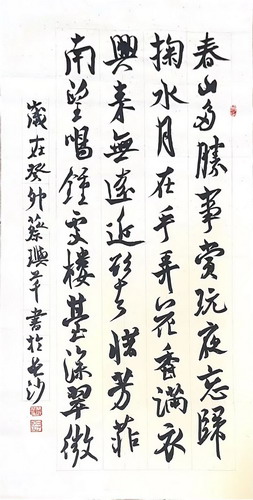 春山多勝事賞玩夜忘歸
掬水月在手弄花香滿衣
興来無遠近欲去惜芳菲
南望鳴鍾處楼臺深翠微
歲在癸卯蔡書於長沙